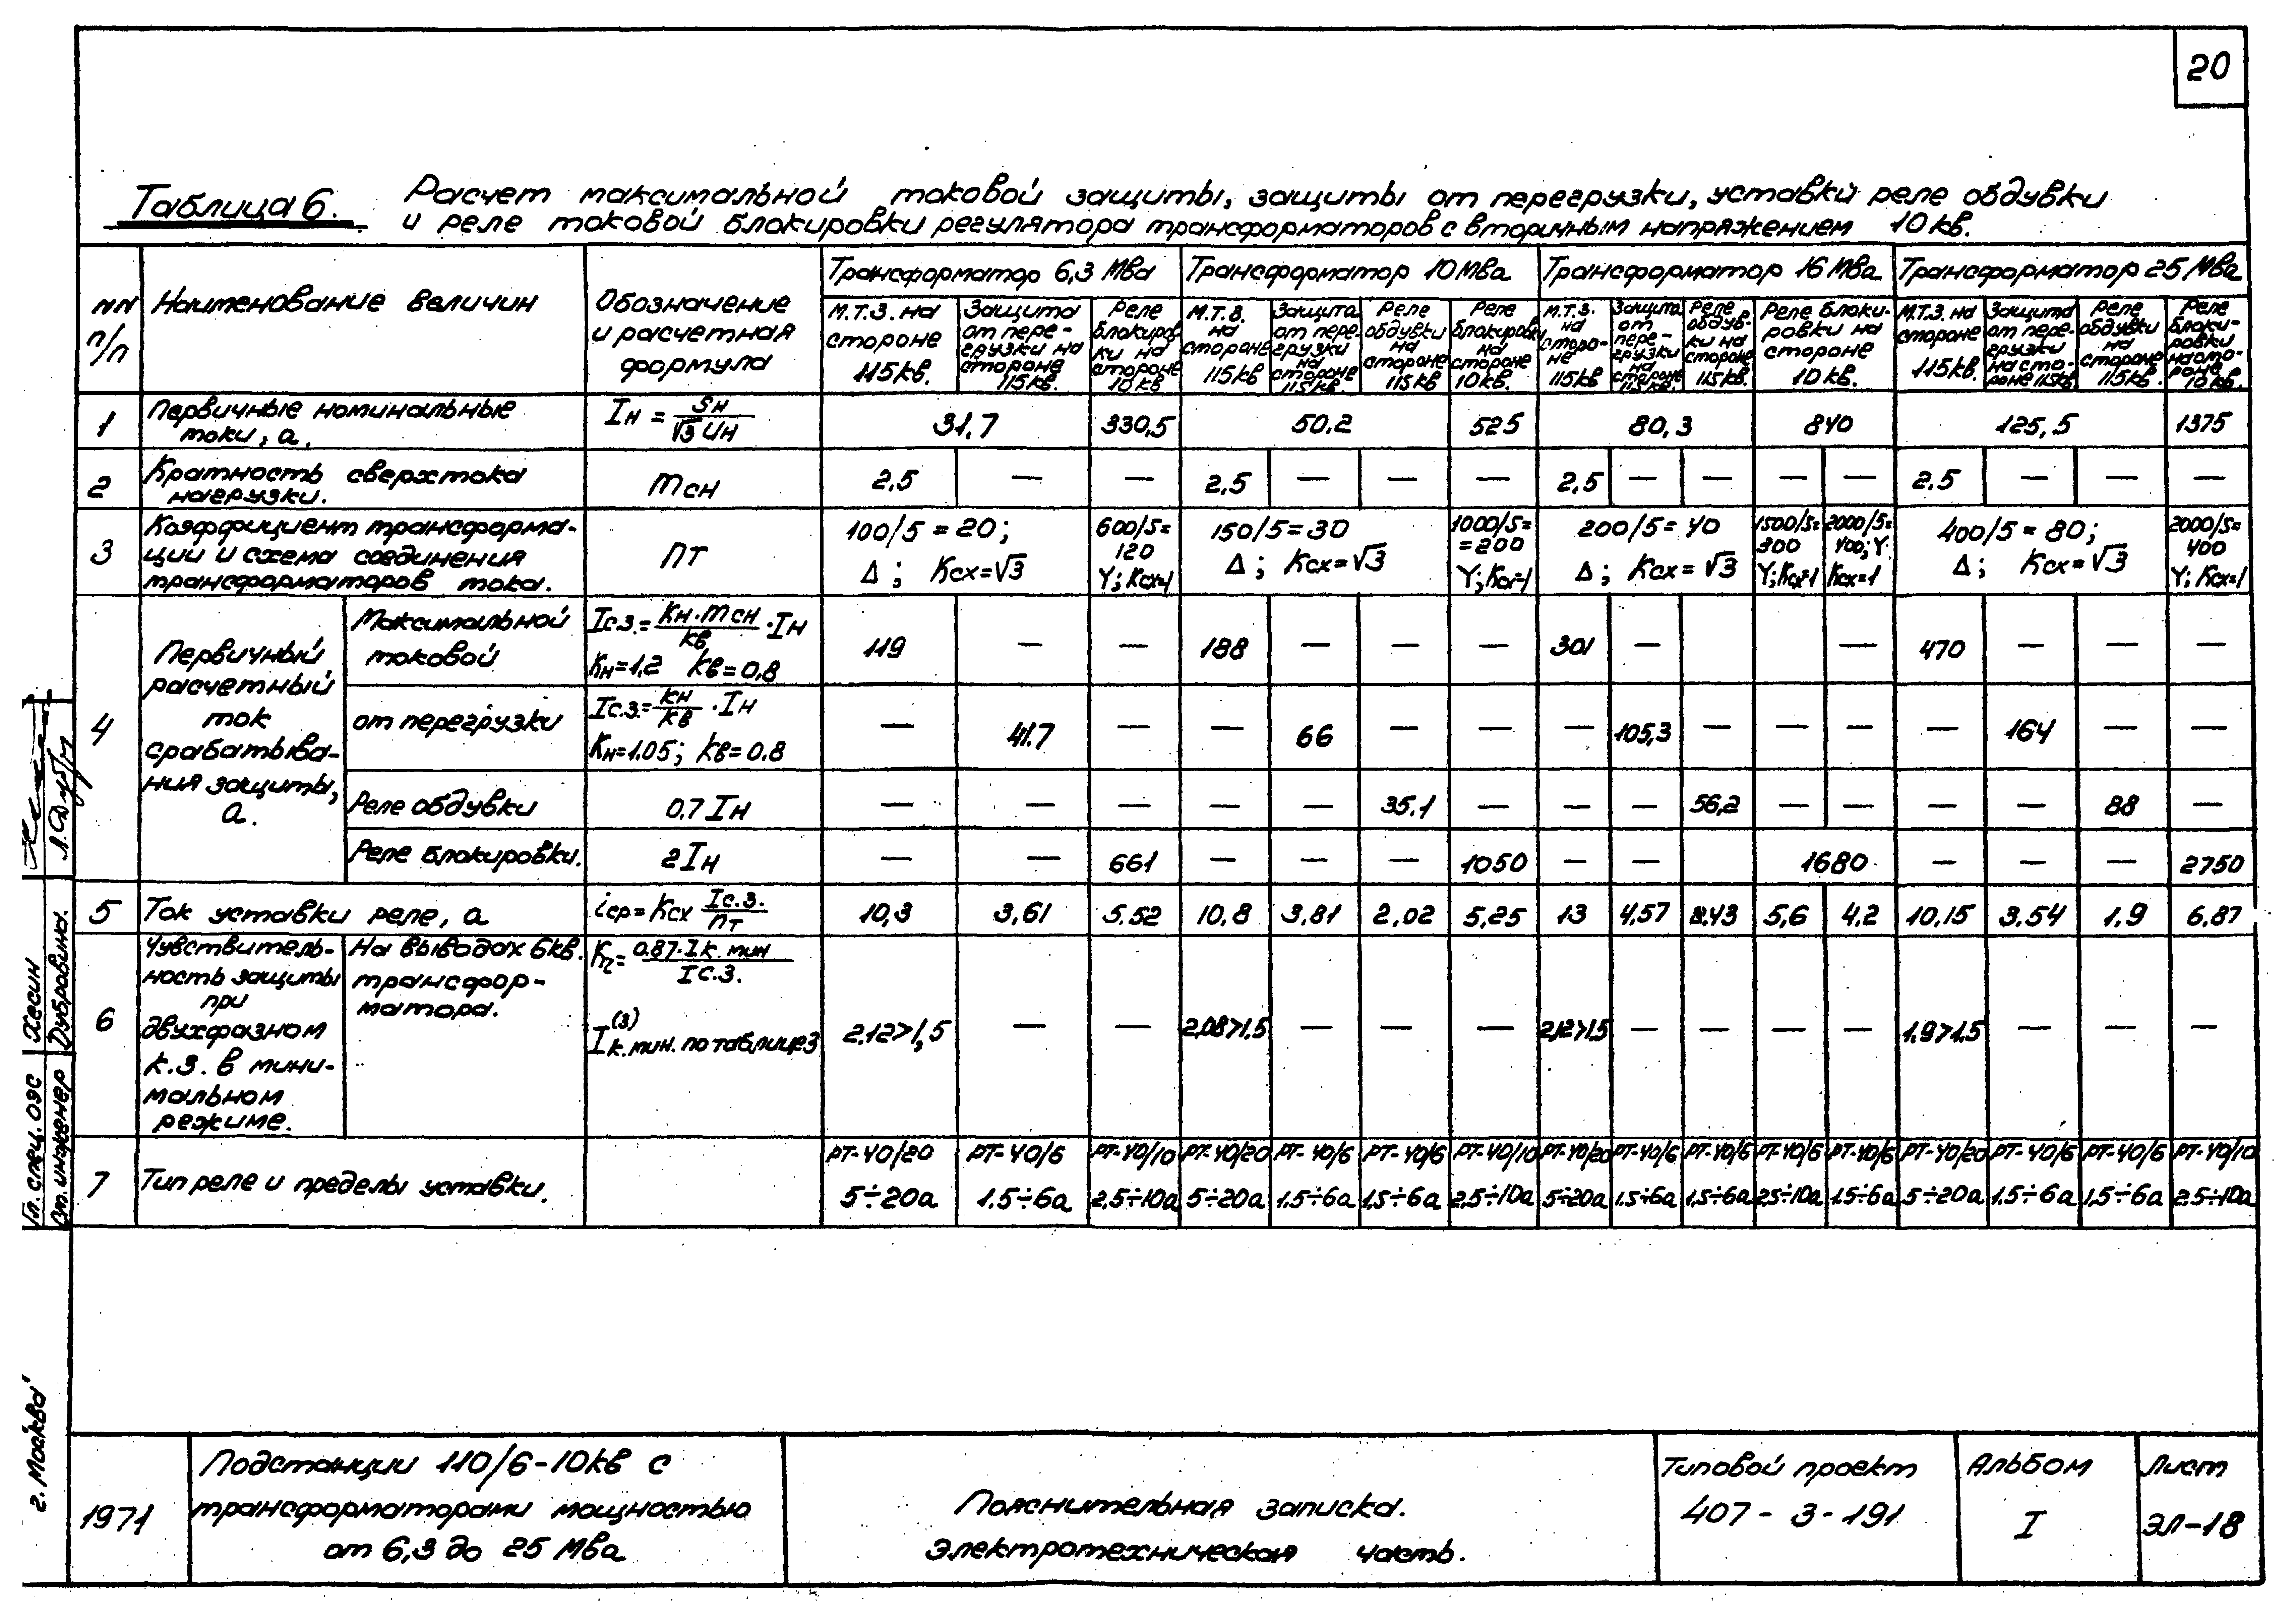 20
Таблица 6. Расчет максимальной токовой защиты, защиты от перегрузки, уставки реле обдувки
и реле токовой блокировки регулятора трансформаторов с вторичным напряжением 10кв.
NN п/п
Наименование величин
Обозначение и расчетная формула
Трансформатор 6,3 Мва
Трансформатор 10Мва
Трансформатор 16 Мва
Трансформатор 25 Мва
М.Т.З. на стороне 115кв.
Защита от пере- грузки на стороне 115кв.
Реле блокиров ки на стороне 10кв
М.Т.З. на стороне 115кв
Защита от пере- грузки на стороне 115кв
Реле обдувки на стороне 115кв
Реле блокировки на стороне 10кв.
М.Т.З. на сторо- не 115кв
Защита от пере- грузки на стороне 115кв.
Реле обдув- ки на стороне 115кв.
Реле блоки- ровки на стороне 10кв.
М.Т.З. на стороне 115кв.
Защита от пере- грузки на сто- роне 115кв.
Реле обдувки на стороне 115кв.
Реле блоки- ровки на сто- роне 10кв.
1 Первичные номинальные токи, а. Iн = Sн / √3 Uн 31,7 330,5 50.2 525 80,3 840 125,5 1375
2 Кратность сверхтока нагрузки. mсн 2,5 — — 2,5 — — — 2,5 — — — — 2.5 — — —
3 Коэффициент трансформа- ции и схема соединения трансформаторов тока. nт
100/5 = 20; Δ; Kсх=√3
600/5= 120 Y; Kсх=1
150/5=30 Δ; Kсх=√3
1000/5= =200 Y; Kсх=1
200/5= 40 Δ; Kсх=√3
1500/5= 300 Y; Kсх=1
2000/5= 400; Y Kсх=1
400/5 = 80; Δ; Kсх=√3
2000/5= 400 Y; Kсх=1
4 Первичный расчетный ток срабатыва- ния защиты, а.
Максимальной токовой Iс.з.= Kн·mсн / kв · Iн Kн=1,2 kв=0,8 119 — — 188 — — — 301 — — 470 — — —
от перегрузки Iс.з.= kн / kв · Iн Kн=1.05; kв=0.8 — 41.7 — — 66 — — — 105,3 — — — — 164 — —
Реле обдувки 0.7 Iн — — — — — 35.1 — — — 56,2 — — — — 88 —
Реле блокировки. 2 Iн — — 661 — — — 1050 — — 1680 — — — 2750
5 Ток уставки реле, а iср=Kсх Iс.з. / nт 10,3 3,61 5.52 10,8 3,81 2,02 5,25 13 4,57 2.43 5,6 4,2 10,15 3.54 1,9 6,87
6 Чувствитель- ность защиты при двухфазном к.з. в мини- мальном режиме.
На выводах 6кв. трансфор- матора.
Kч= 0.87·Iк.мин / Iс.з.
I(3) к.мин. по таблице 3
2.12>1,5 — — 2,08>1.5 — — — 2,12>1.5 — — — — 1.9>1.5 — — —
7 Тип реле и пределы уставки.
РТ-40/20 РТ-40/6 РТ-40/10 РТ-40/20 РТ-40/6 РТ-40/6 РТ-40/10 РТ-40/20 РТ-40/6 РТ-40/6 РТ-40/6 РТ-40/6 РТ-40/20 РТ-40/6 РТ-40/6 РТ-40/10
5÷20а 1.5÷6а 2,5÷10а 5÷20а 1.5÷6а 1,5÷6а 2,5÷10а 5÷20а 1.5÷6а 1,5÷6а 2.5÷10а 1.5÷6а 5÷20а 1.5÷6а 1,5÷6а 2.5÷10а
Гл. спец. ОЭС Хесин
Ст. инженер Дубровина.
г. Москва
1971
Подстанции 110/6-10кв с
трансформаторами мощностью
от 6,3 до 25 Мва
Пояснительная записка.
Электротехническая часть.
Типовой проект
407-3-191
Альбом
I
Лист
ЭЛ-18